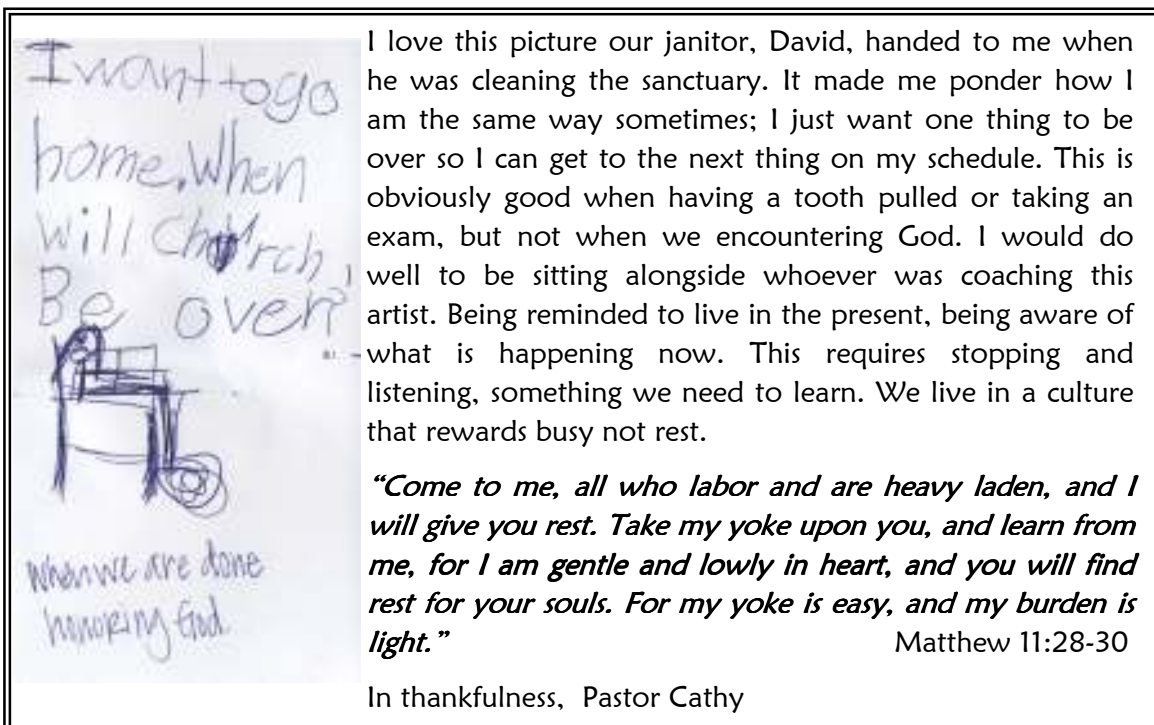 I want to go
home. When
will Church
Be over?
when we are done
honoring God.
I love this picture our janitor, David, handed to me when
he was cleaning the sanctuary. It made me ponder how I
am the same way sometimes; I just want one thing to be
over so I can get to the next thing on my schedule. This is
obviously good when having a tooth pulled or taking an
exam, but not when we encountering God. I would do
well to be sitting alongside whoever was coaching this
artist. Being reminded to live in the present, being aware of
what is happening now. This requires stopping and
listening, something we need to learn. We live in a culture
that rewards busy not rest.
“Come to me, all who labor and are heavy laden, and I
will give you rest. Take my yoke upon you, and learn from
me, for I am gentle and lowly in heart, and you will find
rest for your souls. For my yoke is easy, and my burden is
light.” Matthew 11:28-30
In thankfulness, Pastor Cathy